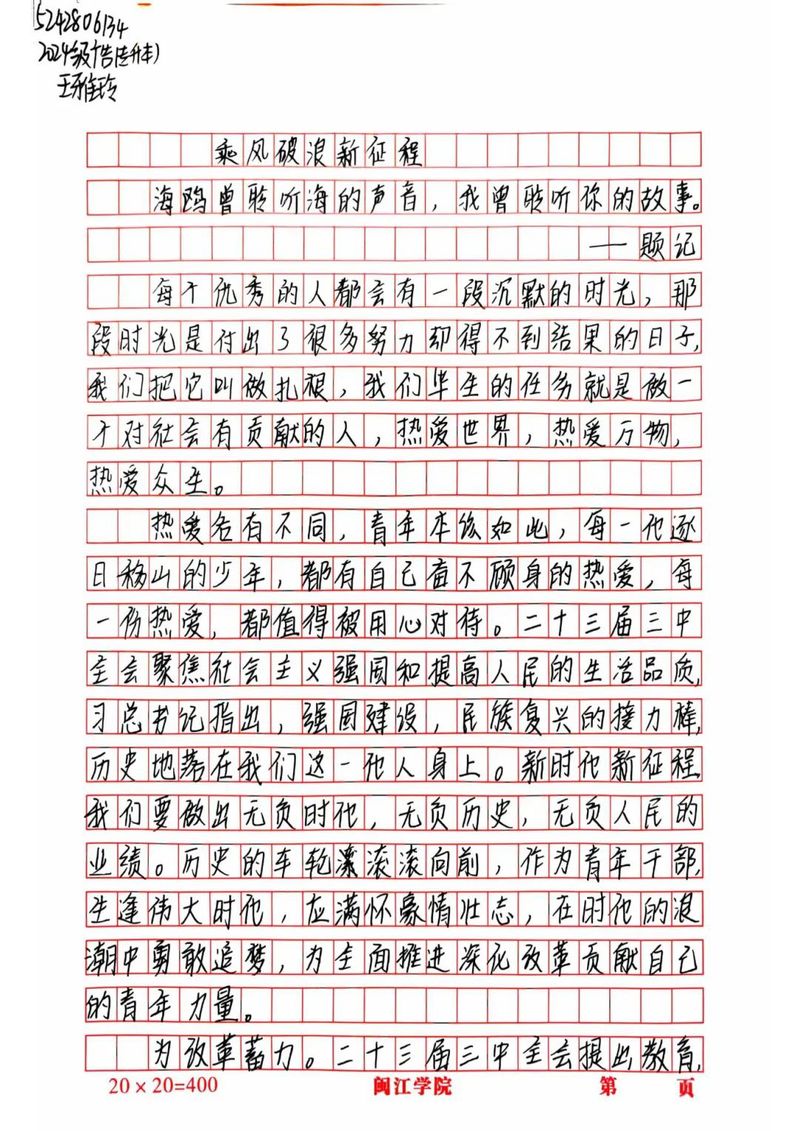 5242806134
2024级广告(专升本)
王雅玲
乘风破浪新征程
海鸥曾聆听海的声音，我曾聆听你的故事。
——题记
每个优秀的人都会有一段沉默的时光，那
段时光是付出了很多努力却得不到结果的日子，
我们把它叫做扎根，我们毕生的任务就是做一
个对社会有贡献的人，热爱世界，热爱万物，
热爱众生。
热爱各有不同，青年本该如此，每一代逐
日移山的少年，都有自己奋不顾身的热爱，每
一份热爱，都值得被用心对待。二十三届三中
全会聚焦社会主义强国和提高人民的生活品质，
习总书记指出，强国建设，民族复兴的接力棒，
历史地落在我们这一代人身上。新时代新征程
我们要做出无负时代，无负历史，无负人民的
业绩。历史的车轮滚滚滚向前，作为青年干部，
生逢伟大时代，应满怀豪情壮志，在时代的浪
潮中勇敢追梦，为全面推进深化改革贡献自己
的青年力量。
为改革蓄力。二十三届三中全会提出教育，
20×20=400 闽江学院 第 页